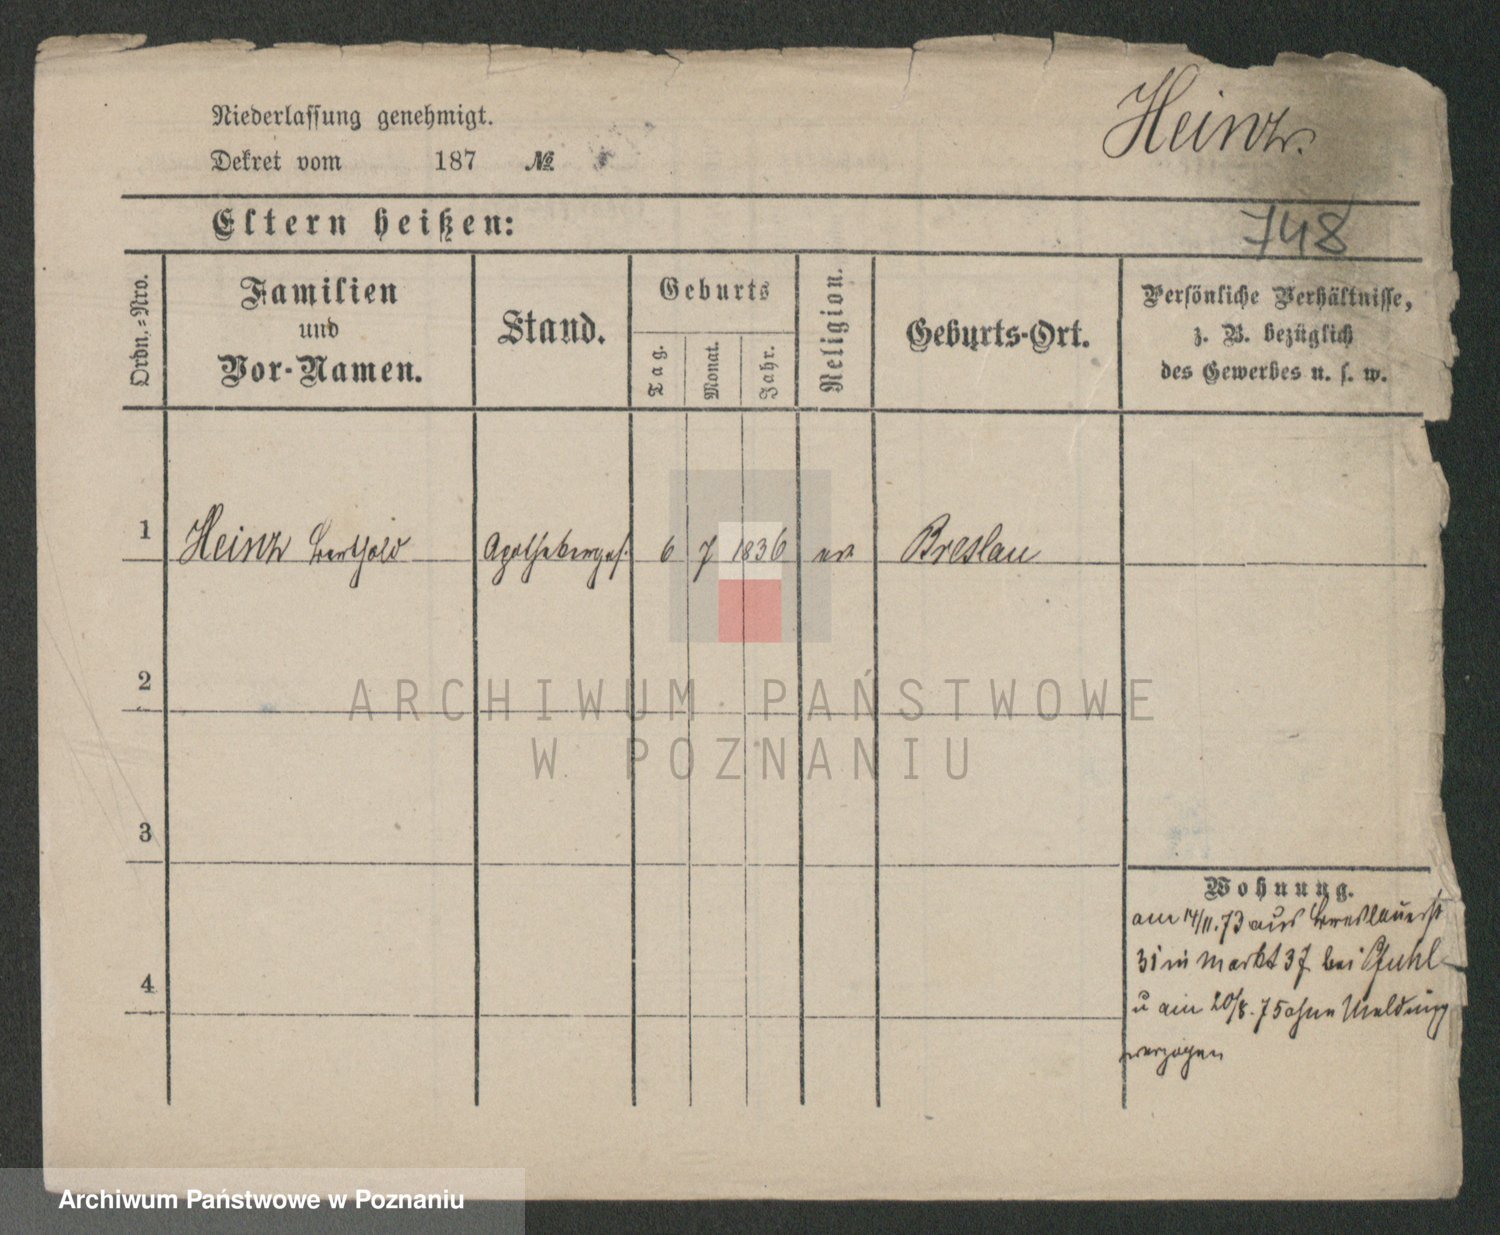 Niederlassung genehmigt.
Heinz.
Dekret vom 187 №
Eltern heißen:
748
Ordn.=Nro.
Familien
und
Vor-Namen.
Stand.
Geburts
Tag.
Monat.
Jahr.
Religion.
Geburts-Ort.
Persönliche Verhältnisse,
z. B. bezüglich
des Gewerbes u. s. w.
1 Heinz Berthold Apothekergeh. 6 7 1836 ev Breslau
2
ARCHIWUM PAŃSTWOWE
W POZNANIU
3
Wohnung.
am 14/11.73 aus Breslauerst
31 in Markt 37 bei Pfuhl
4
u am 20/8.75 ohne Meldung
verzogen
Archiwum Państwowe w Poznaniu